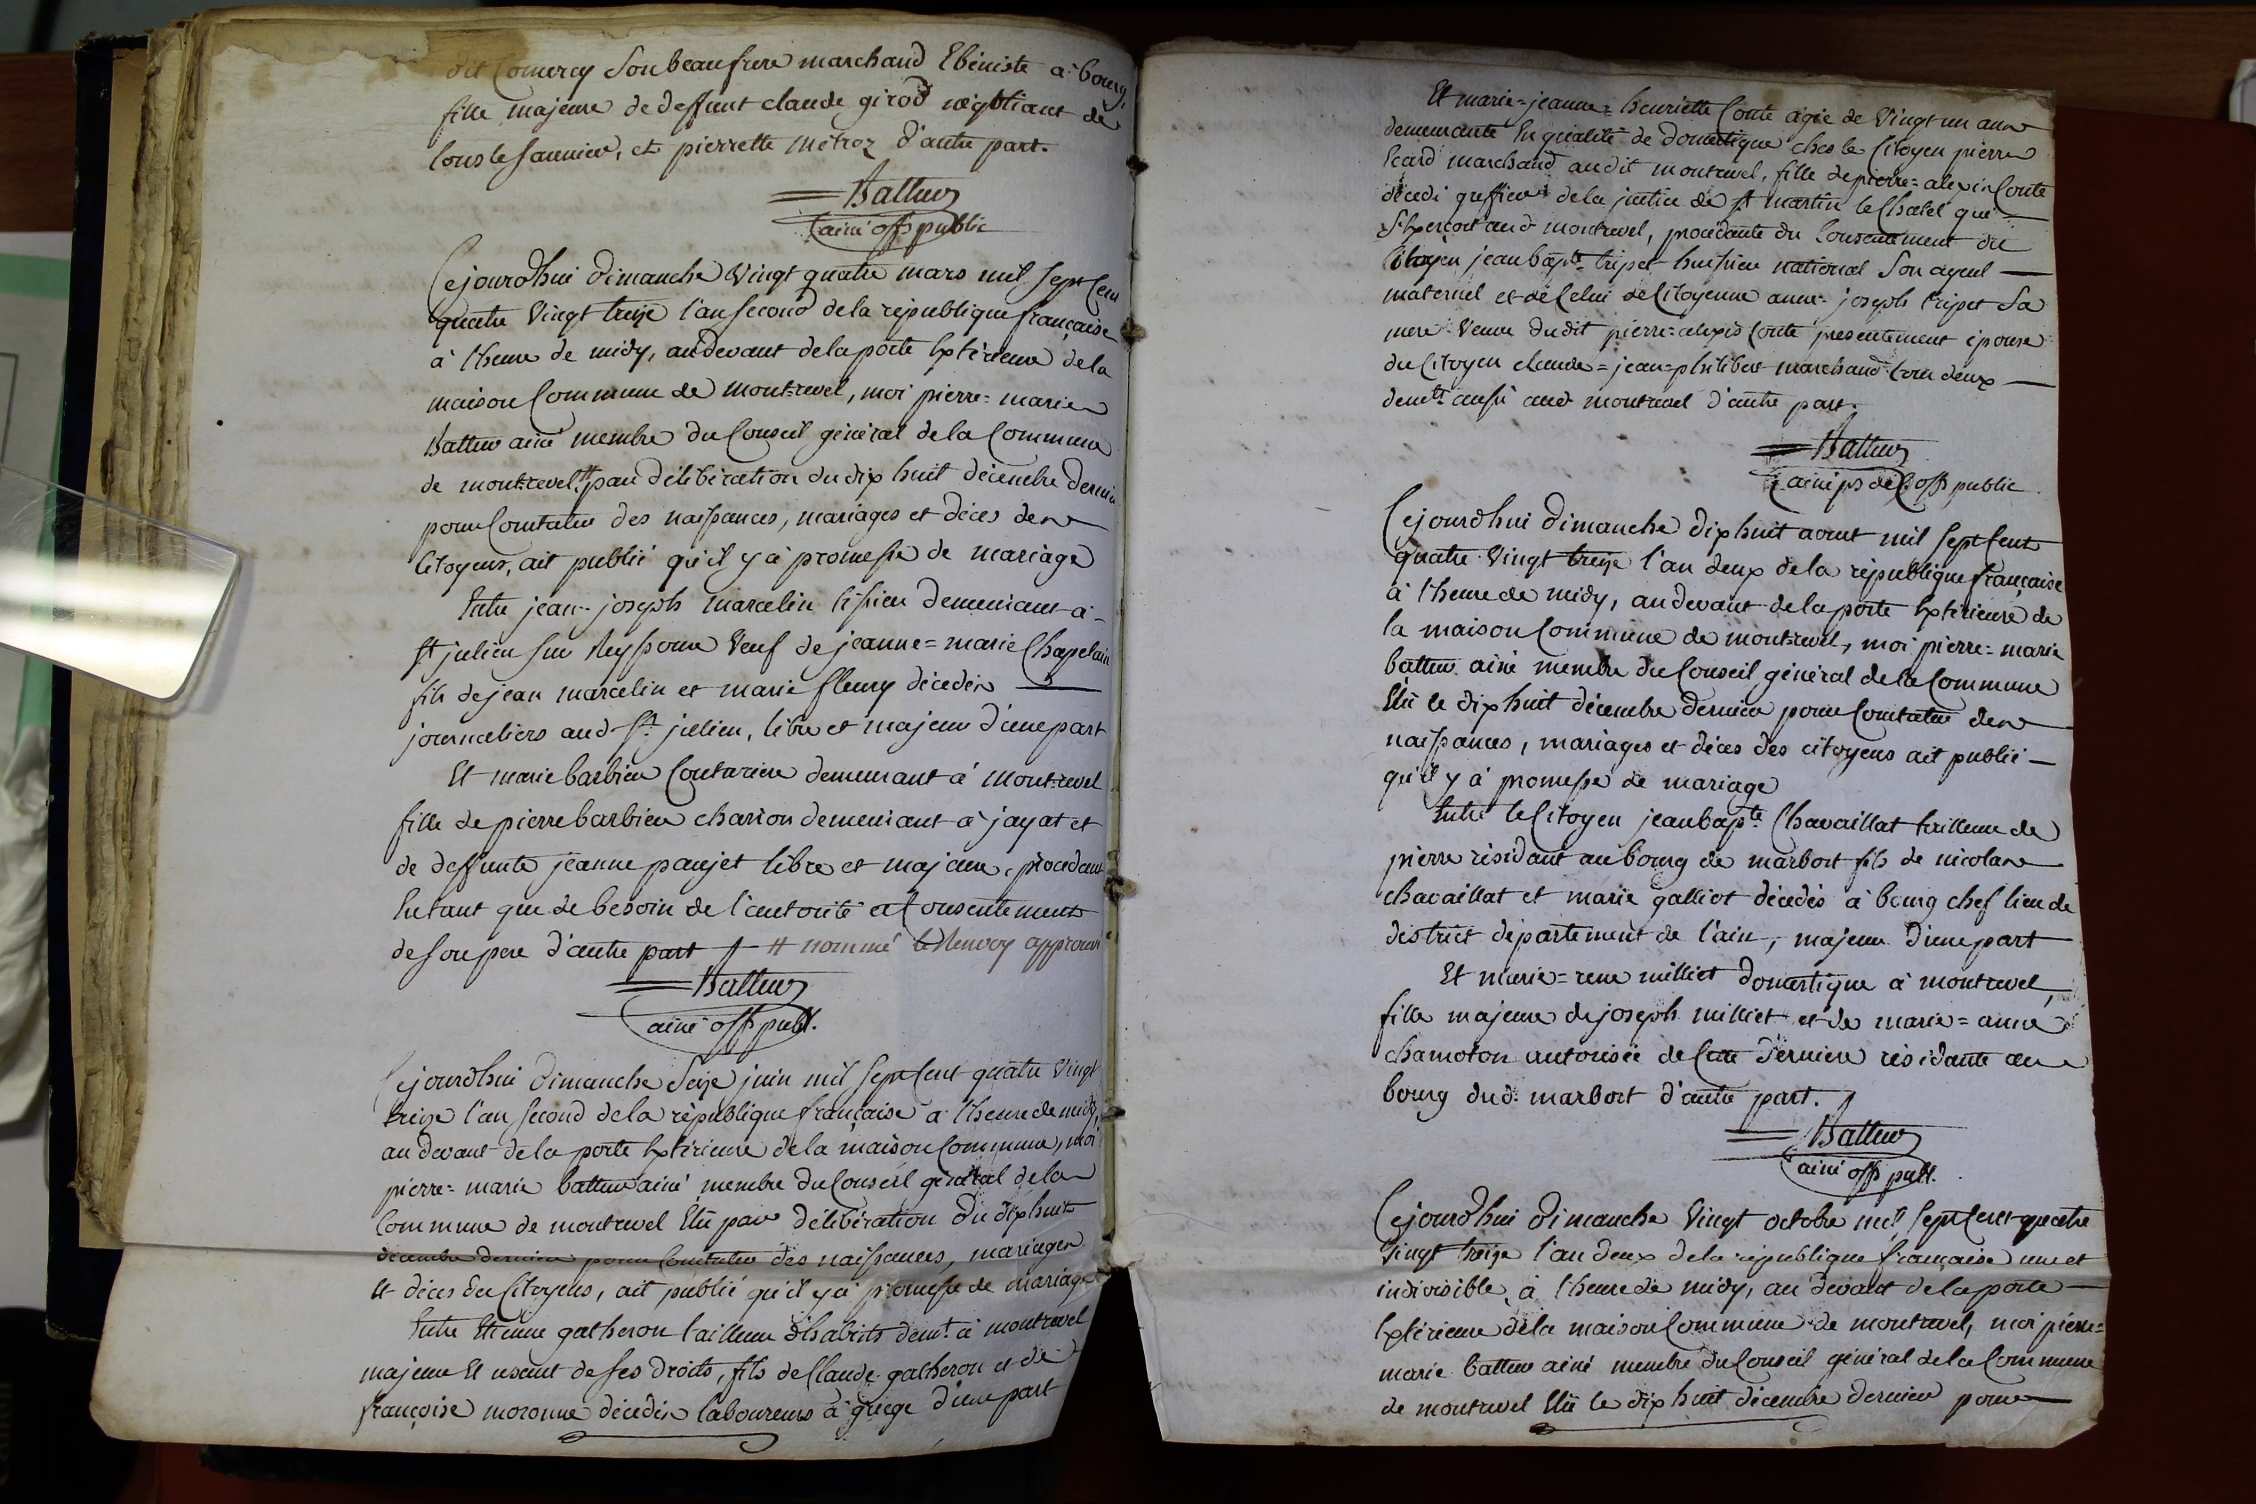 dit Comercy son beau frere marchand Ebeniste a bourg,
fille majeure de deffunt claude girod négotiant de
Lons le saunier, et pierrette métroz d'autre part.
Batteur
ainé off public
Cejourdhui dimanche vingt quatre mars mil sept Cent
quatre vingt treize l'an second de la republique française
à l'heure de midy, audevant de la porte Extérieure de la
maison Commune de mont-revel, moi pierre = marie
Batteur ainé membre du Conseil général de la Commune
de mont-revel # par délibération du dix huit décembre dernier
pour Constater des naissances, mariages et déces des
Citoyens, ait publié qu'il y à promesse de mariage
Entre jean-joseph marcelin tissier demeurant à
st julien sur Reyssouse veuf de jeanne = marie Chapelain
fils de jean marcelin et marie fleury décédés
journaliers aud st julien, libre et majeur d'une part
Et marie barbier Couturiere demeurant à mont-revel
fille de pierre barbier charron demeurant à jayat et
de deffunte jeanne paujet libre et majeure, procédant
Entant que de besoin de l'autorité et Consentement
de son pere d'autre part # nommé le Renvoy approuvé
Batteur
ainé off publ.
Cejourdhui dimanche Seize juin mil sept Cent quatre vingt
treize l'an second de la république française à l'heure de midy,
au devant de la porte Extérieure de la maison Commune, moi
pierre = marie batteur ainé membre du Conseil général de la
Commune de montrevel Elû par délibération du dix huit
décembre dernier pour Constater des naissances, mariages
Et déces des Citoyens, ait publié qu'il y à promesse de mariage
Entre Etienne gatheron tailleur d'habits demt. à montrevel
majeur Et usant de ses droits, fils de Claude gatheron et de
françoise moronne décédés laboureurs à griege d'une part
Et marie = jeanne = henriette Conte agée de vingt un ans
demeurante En qualité de domestique chés le Citoyen pierre
Ecard marchand audit montrevel, fille de pierre = alexis Conte
décédé greffier de la justice de st martin le Chatel qui
s'Exercoit aud montrevel, procédante du Consentement du
Citoyen jean bapte. tripet huissier national son ayeul
maternel et de Celui de Citoyenne anne = joseph tripet sa
mere veuve dudit pierre = alexis Conte presentement épouse
du Citoyen claude = jean = philibert marchand tous deux
demts. aussi aud montrevel d'autre part.
Batteur
ainé ps de C. off public
Cejourdhui dimanche dix huit aout mil sept Cent
quatre vingt treize l'an deux de la république française
à l'heure de midy, au devant de la porte Extérieure de
la maison Commune de mont-revel, moi pierre = marie
batteur ainé membre du Conseil général de la Commune
Elû le dix huit décembre dernier pour Constater des
naissances, mariages et déces des citoyens ait publié
qu'il y à promesse de mariage
Entre le Citoyen jean bapte. Chavaillat tailleur de
pierre résidant au bourg de marbost fils de nicolas
chavaillat et marie galliot décédés à bourg chef lieu de
district département de l'ain, majeur d'une part
Et marie = rene milliet domestique à montrevel,
fille majeure de joseph milliet et de marie = anne
chamoton autorisée de Cette derniere résidante au
bourg dud. marbost d'autre part.
Batteur
ainé off publ.
Cejourdhui dimanche vingt octobre mil sept Cent quatre
vingt treize l'an deux de la république française une et
indivisible, à l'heure de midy, au devant de la porte
Extérieure de la maison Commune de montrevel, moi pierre =
marie batteur ainé membre du Conseil général de la Commune
de montrevel Elû le dix huit décembre dernier pour